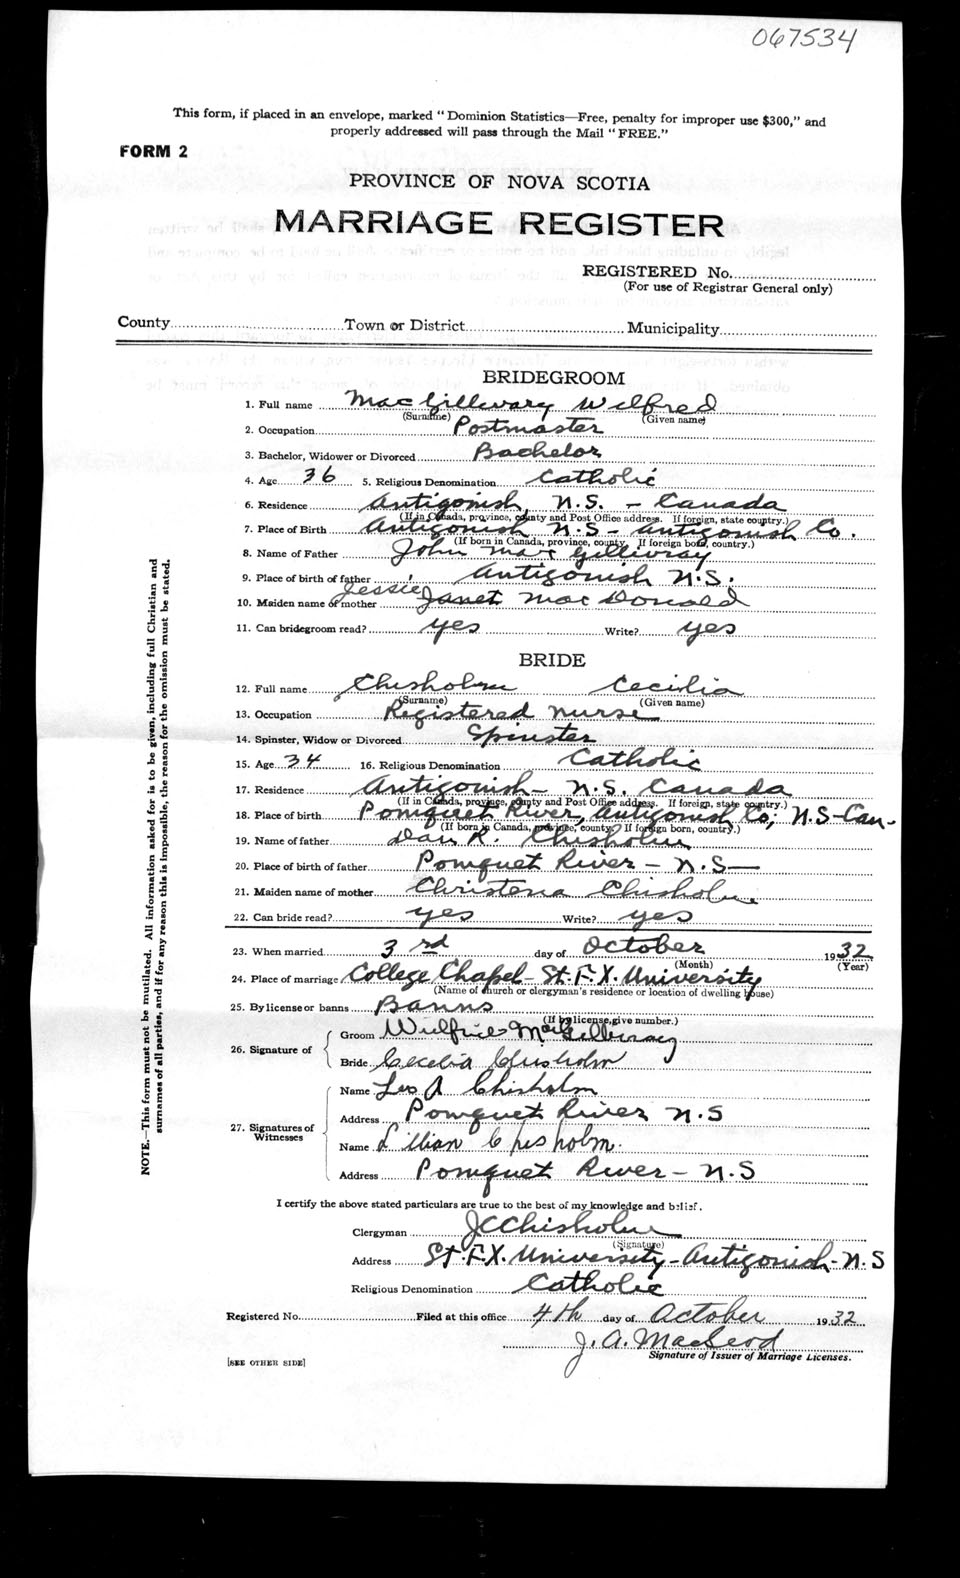 067534
This form, if placed in an envelope, marked "Dominion Statistics—Free, penalty for improper use $300," and
properly addressed will pass through the Mail "FREE."
FORM 2
PROVINCE OF NOVA SCOTIA
MARRIAGE REGISTER
REGISTERED No.
(For use of Registrar General only)
County Town or District Municipality
BRIDEGROOM
1. Full name MacGillivary Wilfred
(Surname) (Given name)
2. Occupation Postmaster
3. Bachelor, Widower or Divorced Bachelor
4. Age 36 5. Religious Denomination Catholic
6. Residence Antigonish, N.S. - Canada
(If in Canada, province, county and Post Office address. If foreign, state country.)
7. Place of Birth Antigonish N.S - Antigonish Co.
(If born in Canada, province, county. If foreign born, country.)
8. Name of Father John MacGillivray
9. Place of birth of father Antigonish N.S.
Jessie
10. Maiden name of mother Janet MacDonald
11. Can bridegroom read? yes Write? yes
BRIDE
12. Full name Chisholm Cecilia
(Surname) (Given name)
13. Occupation Registered Nurse
14. Spinster, Widow or Divorced Spinster
15. Age 34 16. Religious Denomination Catholic
17. Residence Antigonish - N.S. Canada
(If in Canada, province, county and Post Office address. If foreign, state country.)
18. Place of birth Pomquet River, Antigonish Co; N.S - Can -
(If born in Canada, province, county. If foreign born, country.)
19. Name of father Dan R. Chisholm
20. Place of birth of father Pomquet River - N.S —
21. Maiden name of mother Christena Chisholm
22. Can bride read? yes Write? yes
23. When married 3rd day of October 1932
(Month) (Year)
24. Place of marriage College Chapel - St. F.X. University
(Name of church or clergyman's residence or location of dwelling house)
25. By license or banns Banns
(If by license, give number.)
26. Signature of Groom Wilfrid MacGillivray
Bride Cecelia Chisholm
27. Signatures of Witnesses Name Leo A Chisholm
Address Pomquet River N.S
Name Lillian Chisholm.
Address Pomquet River - N.S
I certify the above stated particulars are true to the best of my knowledge and belief.
Clergyman JC Chisholm
(Signature)
Address St. F.X. University - Antigonish - N.S
Religious Denomination Catholic
Registered No. Filed at this office 4th day of October 1932
J. A. MacLeod
Signature of Issuer of Marriage Licenses.
[SEE OTHER SIDE]
NOTE.—This form must not be mutilated. All information asked for is to be given, including full Christian and
surnames of all parties, and if for any reason this is impossible, the reason for the omission must be stated.